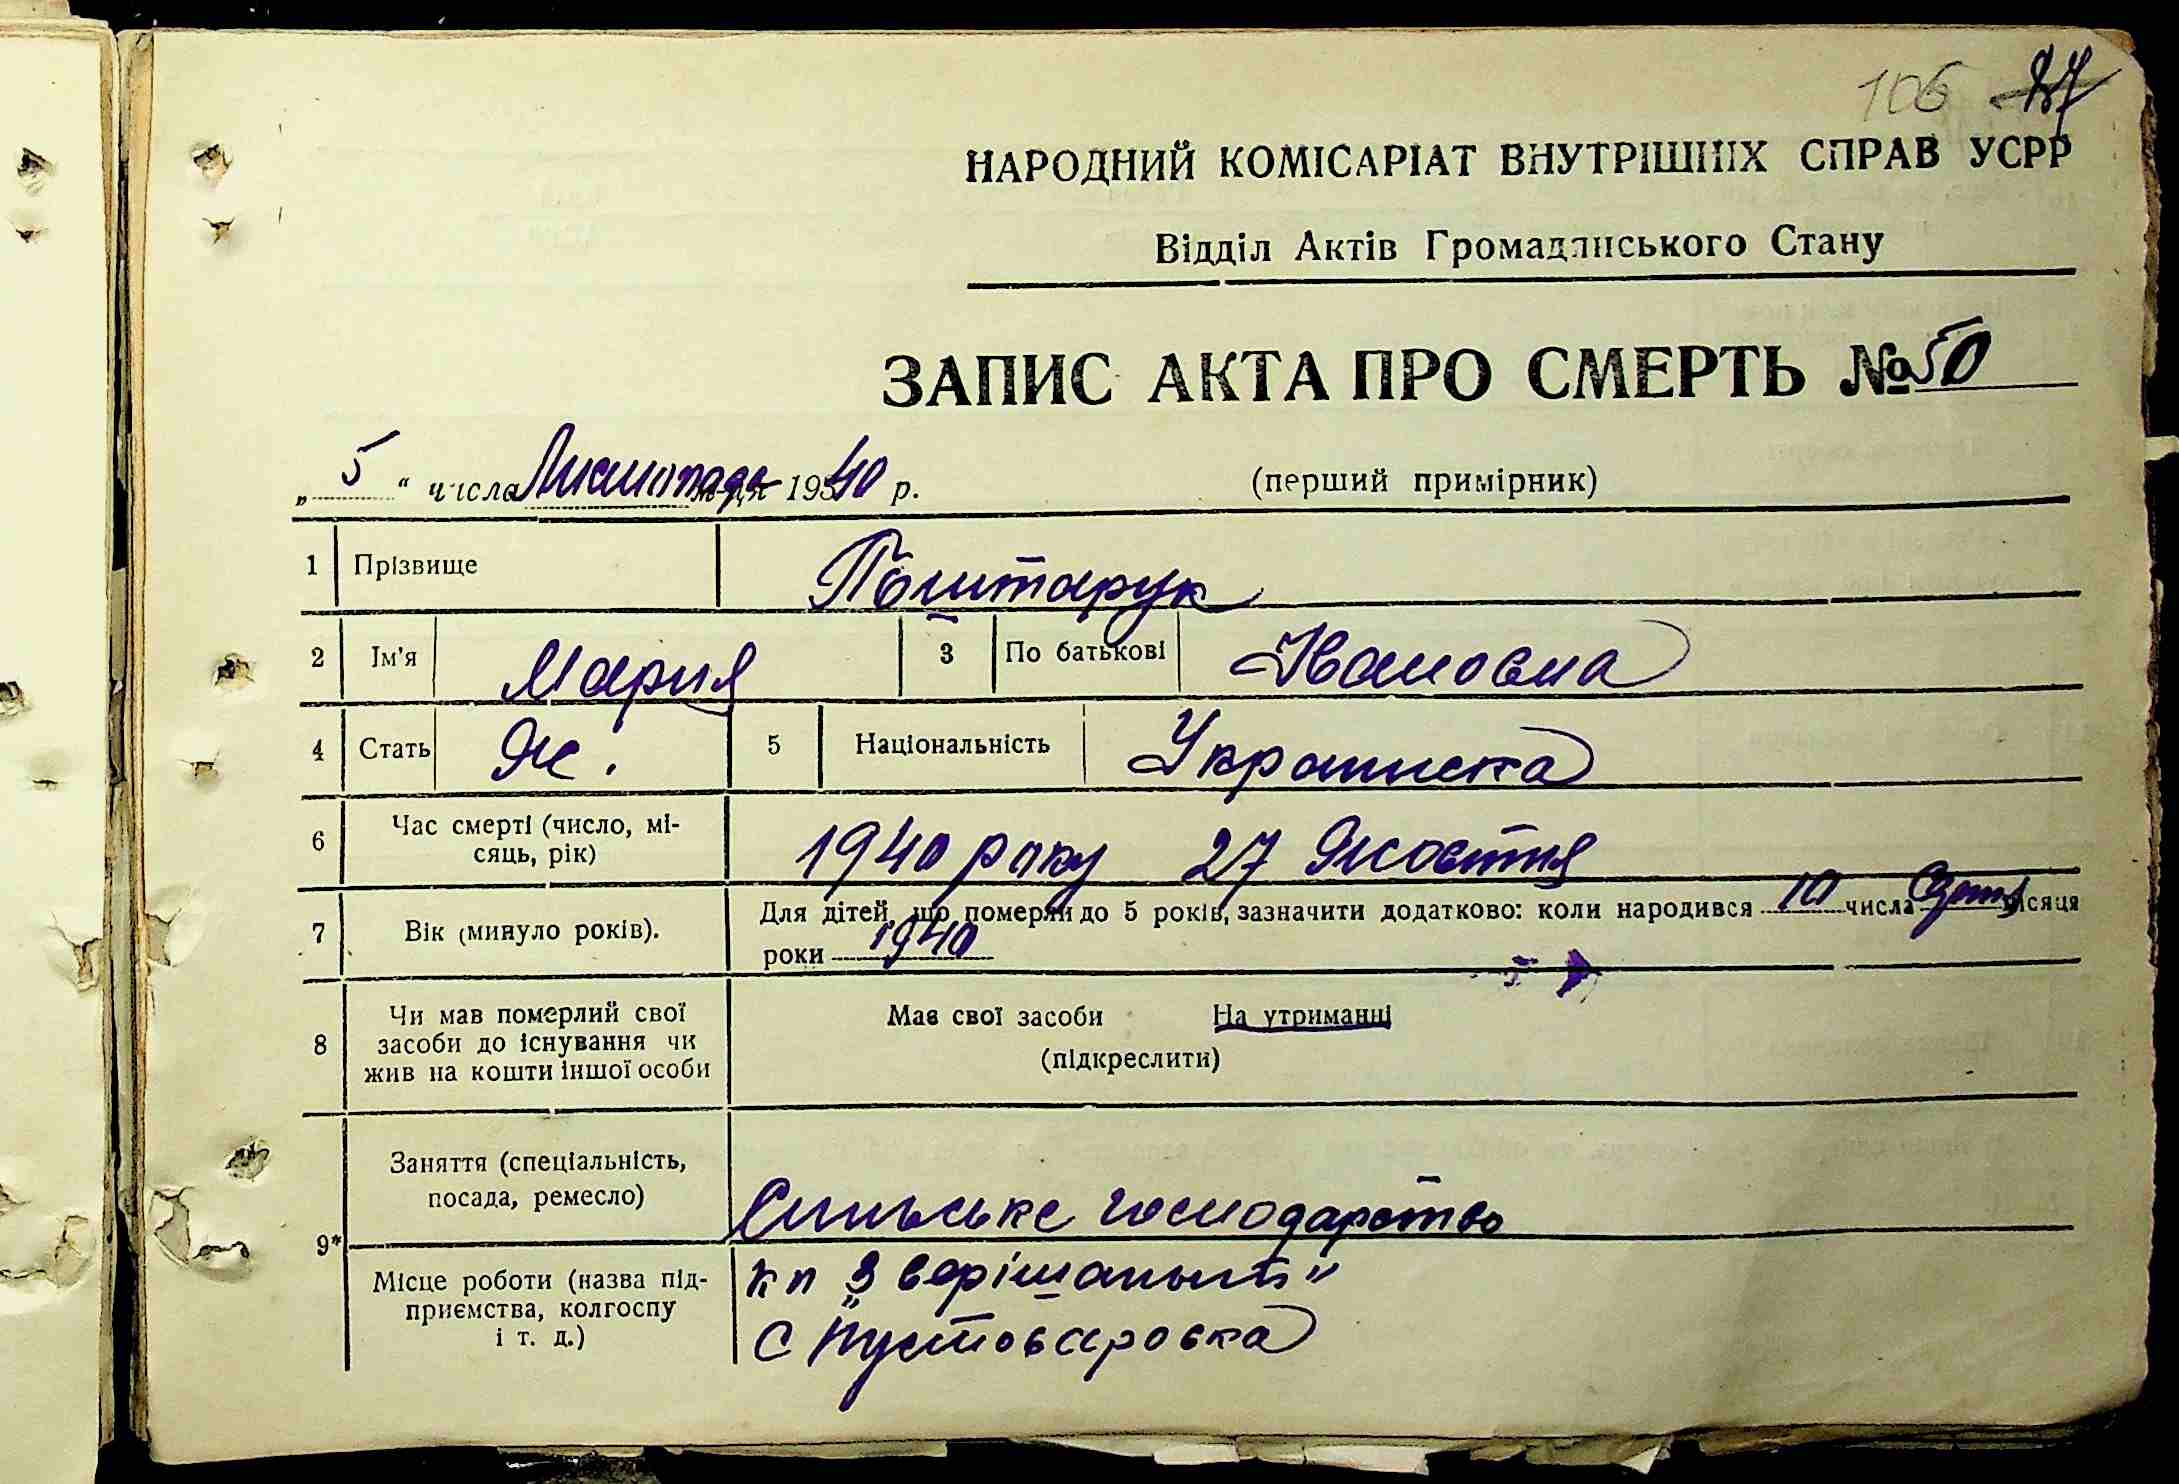 106 27
НАРОДНИЙ КОМІСАРІАТ ВНУТРІШНІХ СПРАВ УСРР
Відділ Актів Громадянського Стану
ЗАПИС АКТА ПРО СМЕРТЬ № 50
„ 5 “ числа Листопада м-ця 1940 р. (перший примірник)
1 Прізвище Поштарук
2 Ім’я Мария 3 По батькові Ивановна
4 Стать Ж. 5 Національність Украинска
6 Час смерті (число, мі-
сяць, рік) 1940 року 27 Жовтня
7 Вік (минуло років). Для дітей, що померли до 5 років, зазначити додатково: коли народився 10 числа місяця
роки 1940
8 Чи мав померлий свої
засоби до існування чи
жив на кошти іншої особи
Має свої засоби На утриманні
(підкреслити)
9* Заняття (спеціальність,
посада, ремесло) Сильське господарство
Місце роботи (назва під-
приємства, колгоспу
і т. д.)
кп
с Пустоваровка